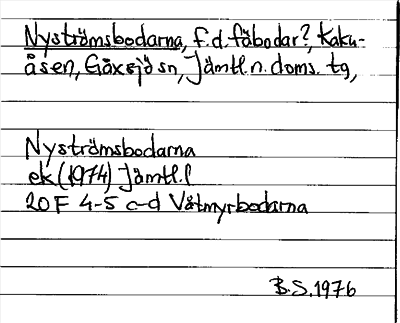 Nyströmsbodarna, f.d. fäbodar?, Kaku-
åsen, Gåxsjö sn, Jämtl. n. doms. tg,
Nyströmsbodarna
ek (1974) Jämtl. l
20F 4-5 c-d Våtmyrbodarna
B.S. 1976